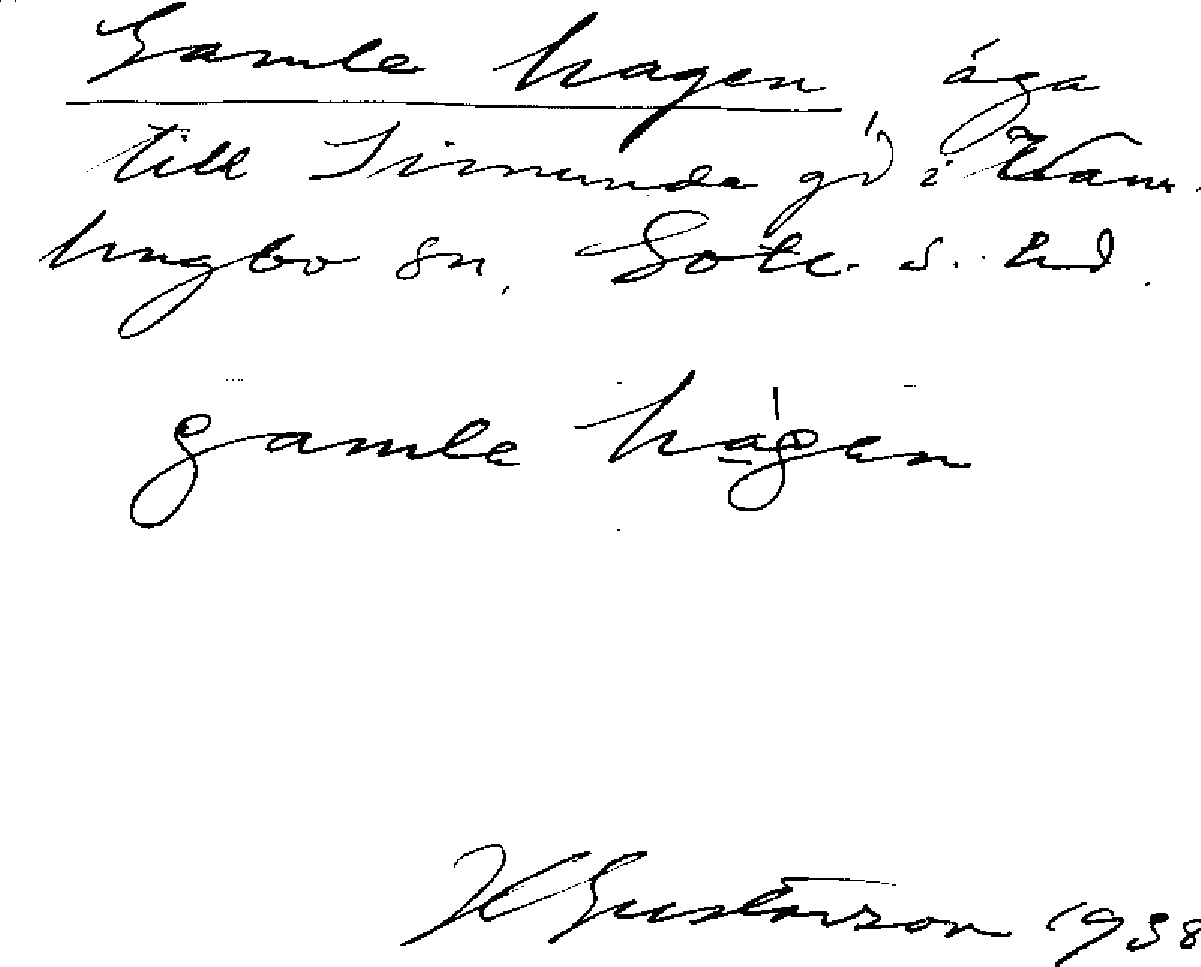 Gamle hagen äga
till Simunda gd i Kvam-
hngbo sn, Gotl. s. hd.
gamle hagen
H Gustavson 1938